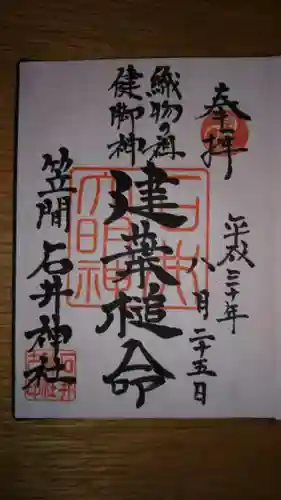 奉拝
平成三十年
八月二十五日
織物の祖
健御神
建葉槌命
笠間 石井神社